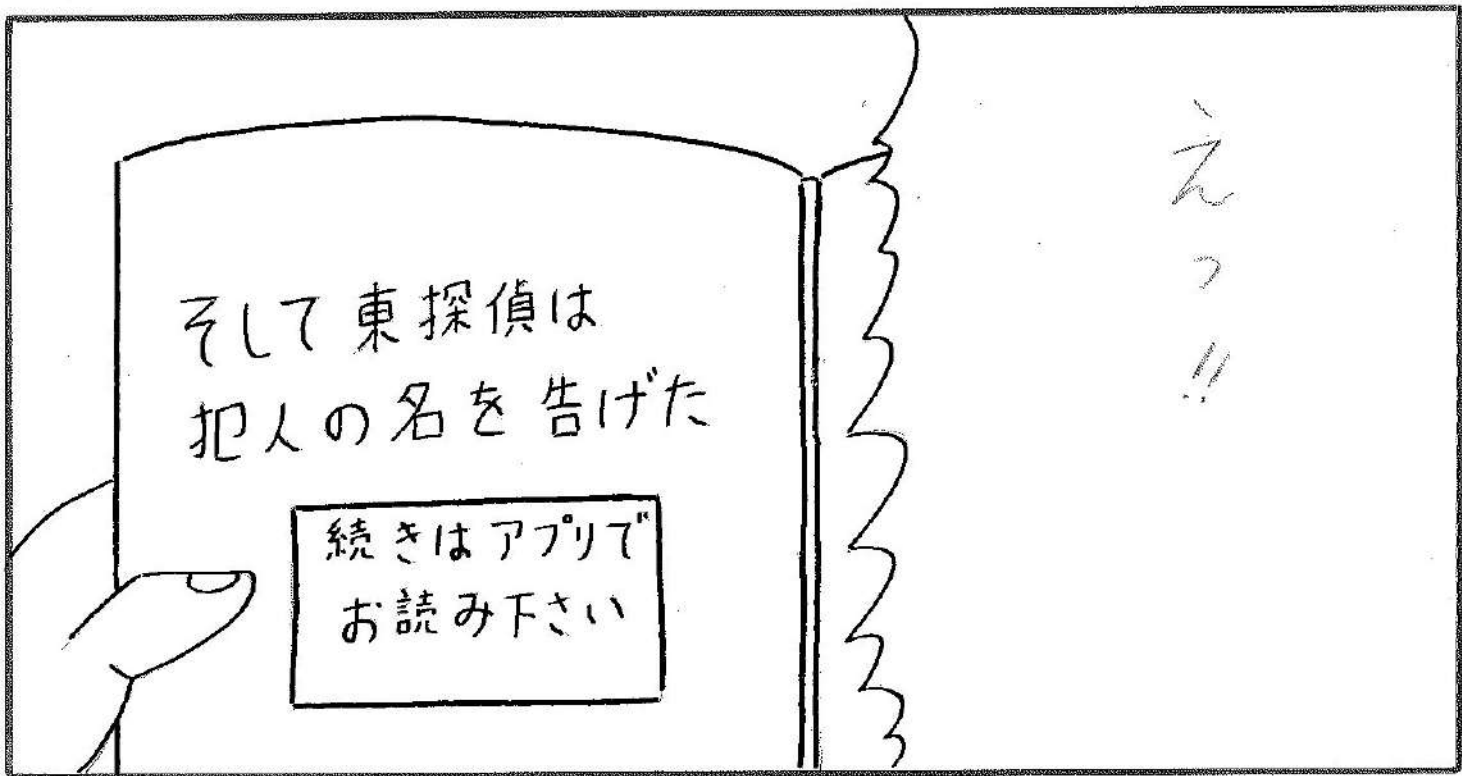 えっ!!
そして東探偵は
犯人の名を告げた
続きはアプリで
お読み下さい